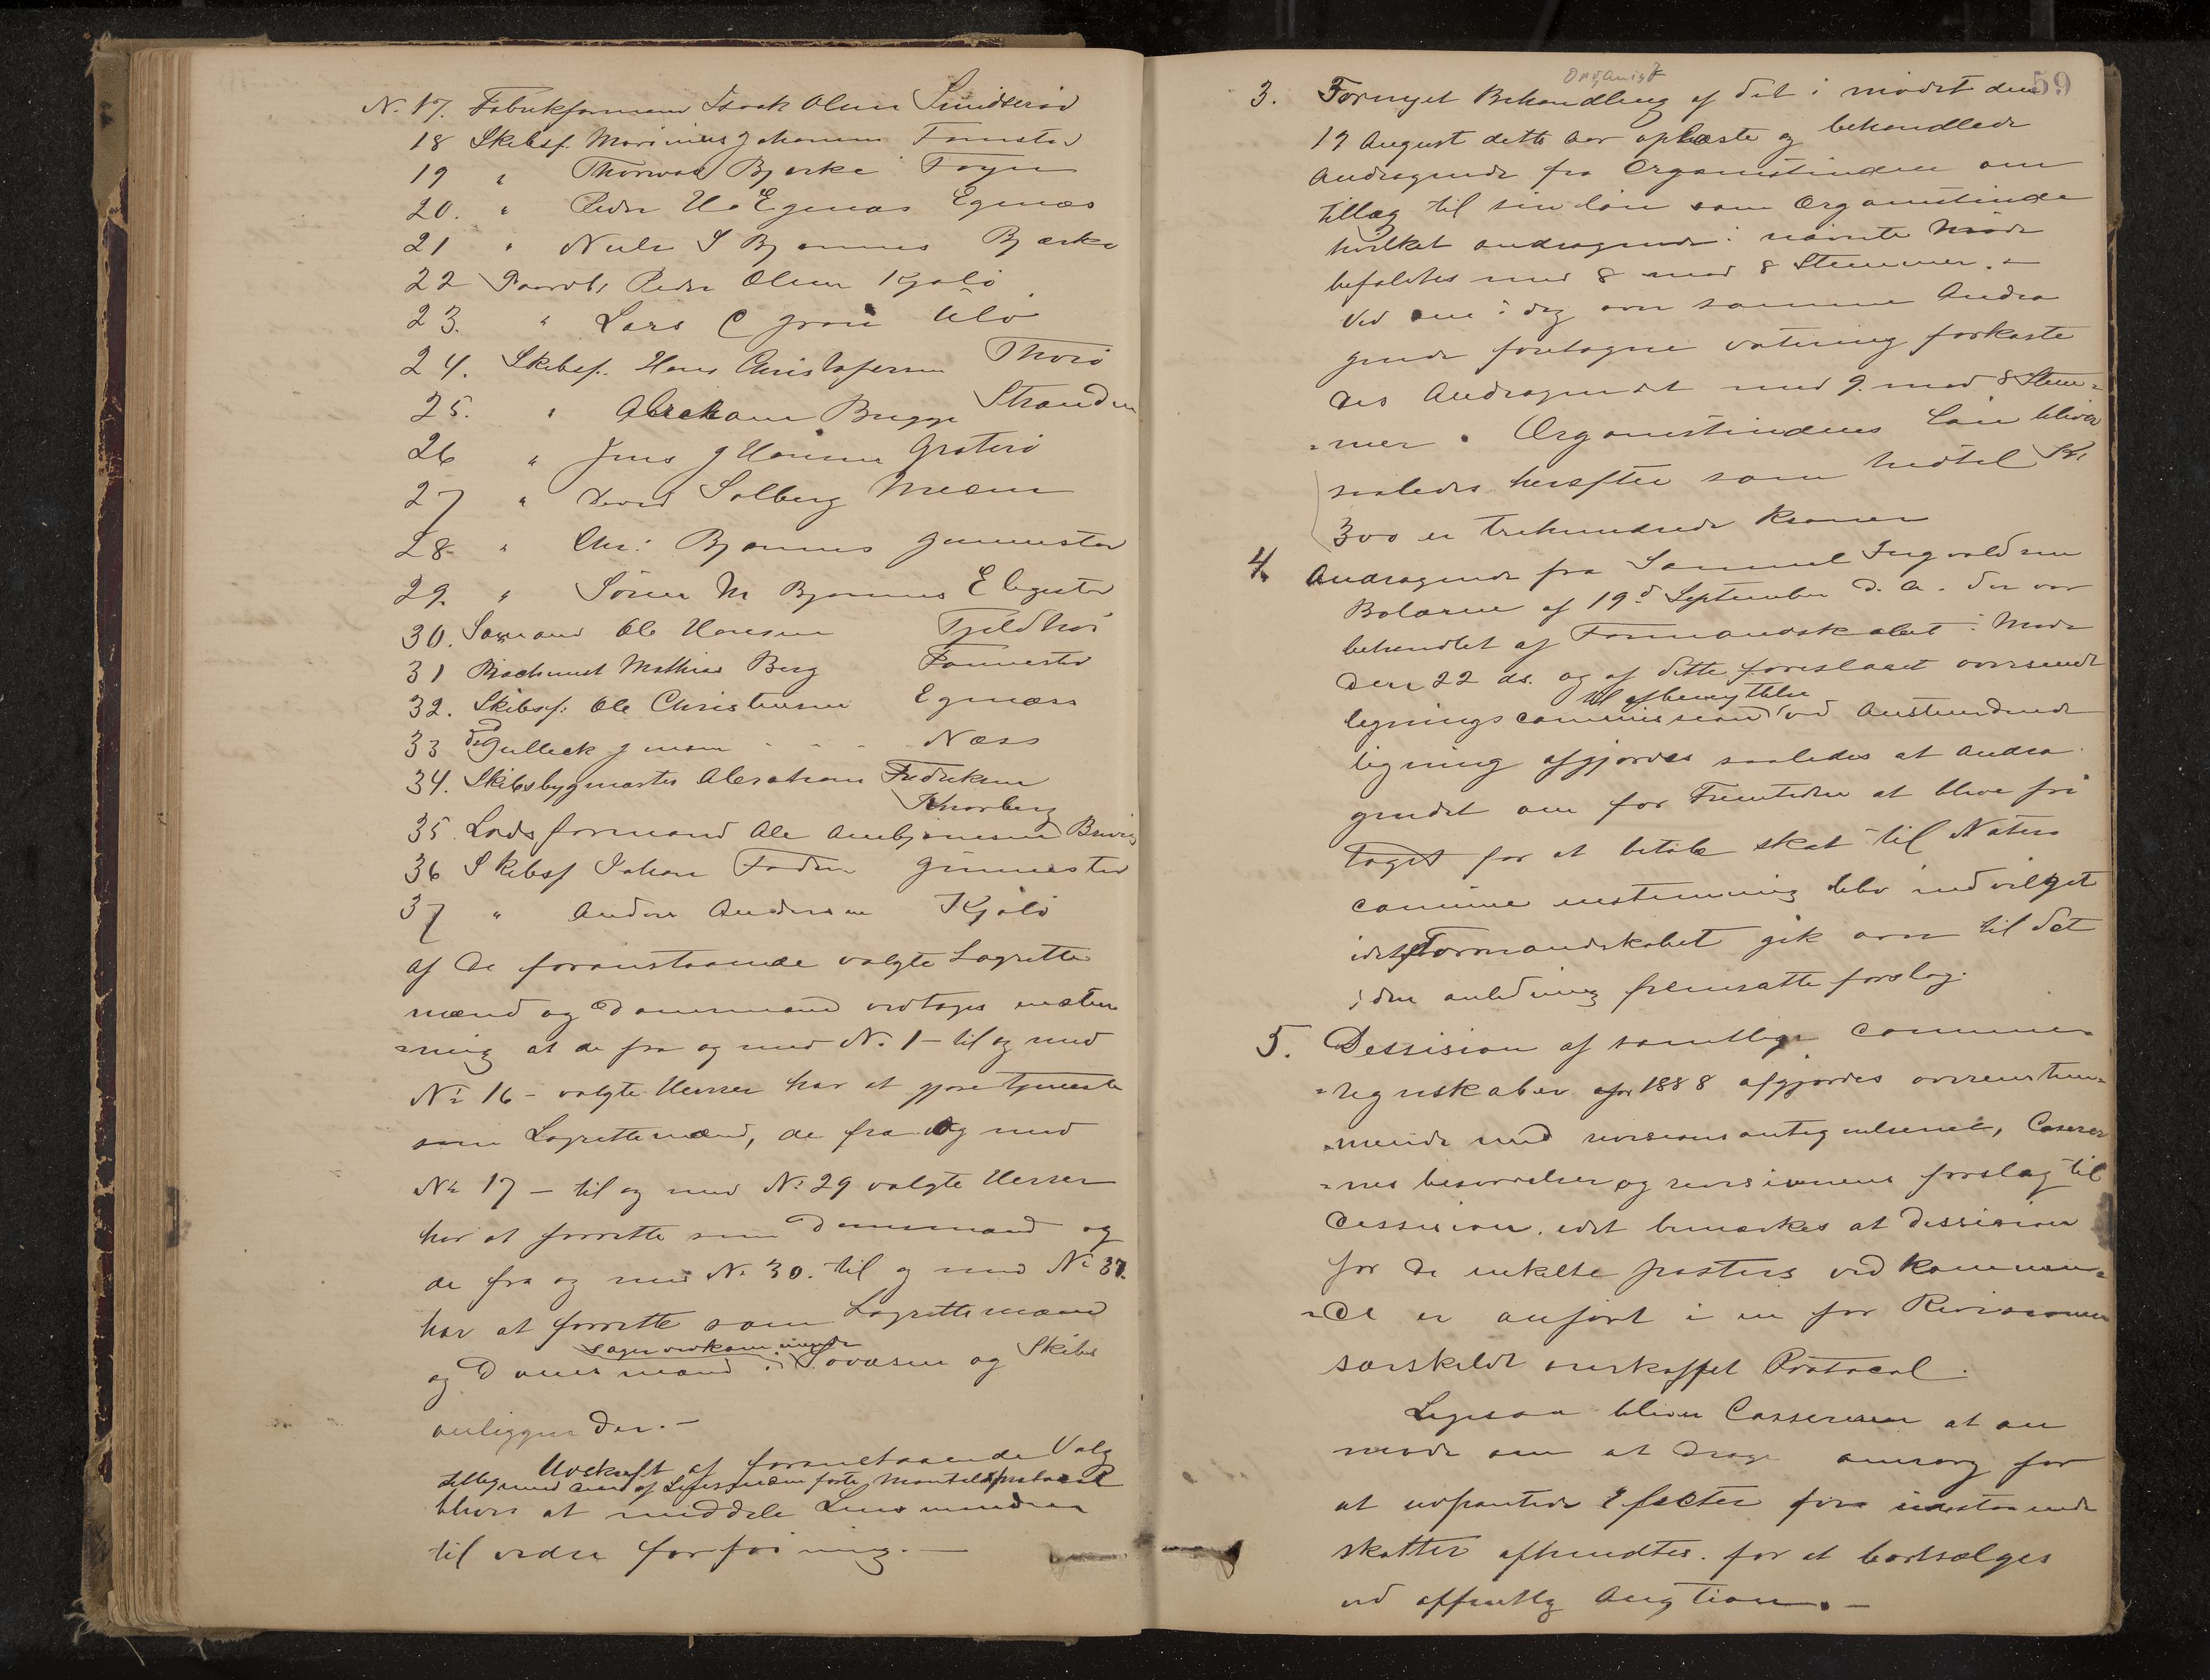 N. 17. Fabrikformann Isack Olsen Smidserød
18 Skibsf. Marinius Johannsen Fonnstad
19 " Thorvald BjerkeFøyn
20. " Peder H. Egenæs Egenæs
21 " Niels S Bjønnes Bjærke
22 Peder Olsen Kjøle
23. " Lars C Grøn
24. Skibsf. Hans Christofersen Thorø
25. " Abraham Brygge Stranden
26 " Jens J Hansen Grøterø
27 " David Solberg
28 " Chr: Bjønnes Gunnestad
29. " Søren M Bjønnes Elgestad
30. Sømand Ole Hansen Tjeldhol
31 Mathias Berg Fonnestad
32. Skibsf: Ole Christensen Egenæss
33 do Gulleck J - - - Næss
34. Skibsbygmæster Abraham Fredriksen
Thorberg
35. Lodsformand Ole Arnbjørnesen
36 Skibsf Johan Foden Gunnestad
37 " Anders Andersen Kjøle
af de foranstaaende valgte Lagrette
mænd og Domsmænd vedtoges enstem
=mig at de fra og med N. 1 – til og med
No 16 – valgte Herrer har at gjøre tjeneste
som Lagrettemænd, de fra og med
No 17 – til og med No 29 valgte Herrer
har at forrette som Domsmænd og
de fra og med No 30. til og med No 37.
har at forrette som Lagrettemænd
sager vedkommende
og Domsmænd i Søvæsen og Skibs
anliggender. –
Udskrift af foranstaaende Valg
tilligemed af Lensmanden førte Mantalsprotocol
blives at meddele Lensmanden
til videre forføining. –
Organist
59
3. Fornyet Behandling af det i mødet den
19 August dette Aar oplæste og behandlede
Andragende fra Organistinden om
tillæg til sin løn som Organistinde
hvilket andragende i nævnte Møde
befaldtes med 8 mod 8 Stemmer. –
Ved en i dag over samme Andra
gende foretagne votering forkaste
des Andragendet med 9. mod 8 Stem=
=mer. Organistindens løn bliver
saaledes herefter som hidtil Kr
300 er trehundrede Kroner
4. Andragende fra Samuel Ingvaldsen
Bolærne af 19d September d. A. der var
behandlet af Formandskabet i Møde
den 22 ds. og af dette foreslaaet oversendt
til afbenyttelse
ligningscommissionen ved Anstundende
ligning afgjordes saaledes at Andra
gendet om for Fremtiden at blive fri
taget for at betale skat til Nøterø
comune enstemmig blev indvilget
idet Formandskabet gik over til det
i den anledning fremsatte forslag.
5. Dessision af samtlige Commune
=regnskaber for 1888 afgjordes overenstem=
=mende med revisionsantegnelserne, Casserer
=nes besvarelser og revisionens forslag til
dessision. idet bemærkes at dessision
for de enkelte posters vedkommen=
=de er anført i en for Revisionen
særskildt anskaffet Protocol.
Ligesaa bliver Cassereren at an
mode om at drage omsorg for
at udpantede Efecter for udestaaende
skatter afhendtes. for at bortsælges
ved offentlig Augtion. –